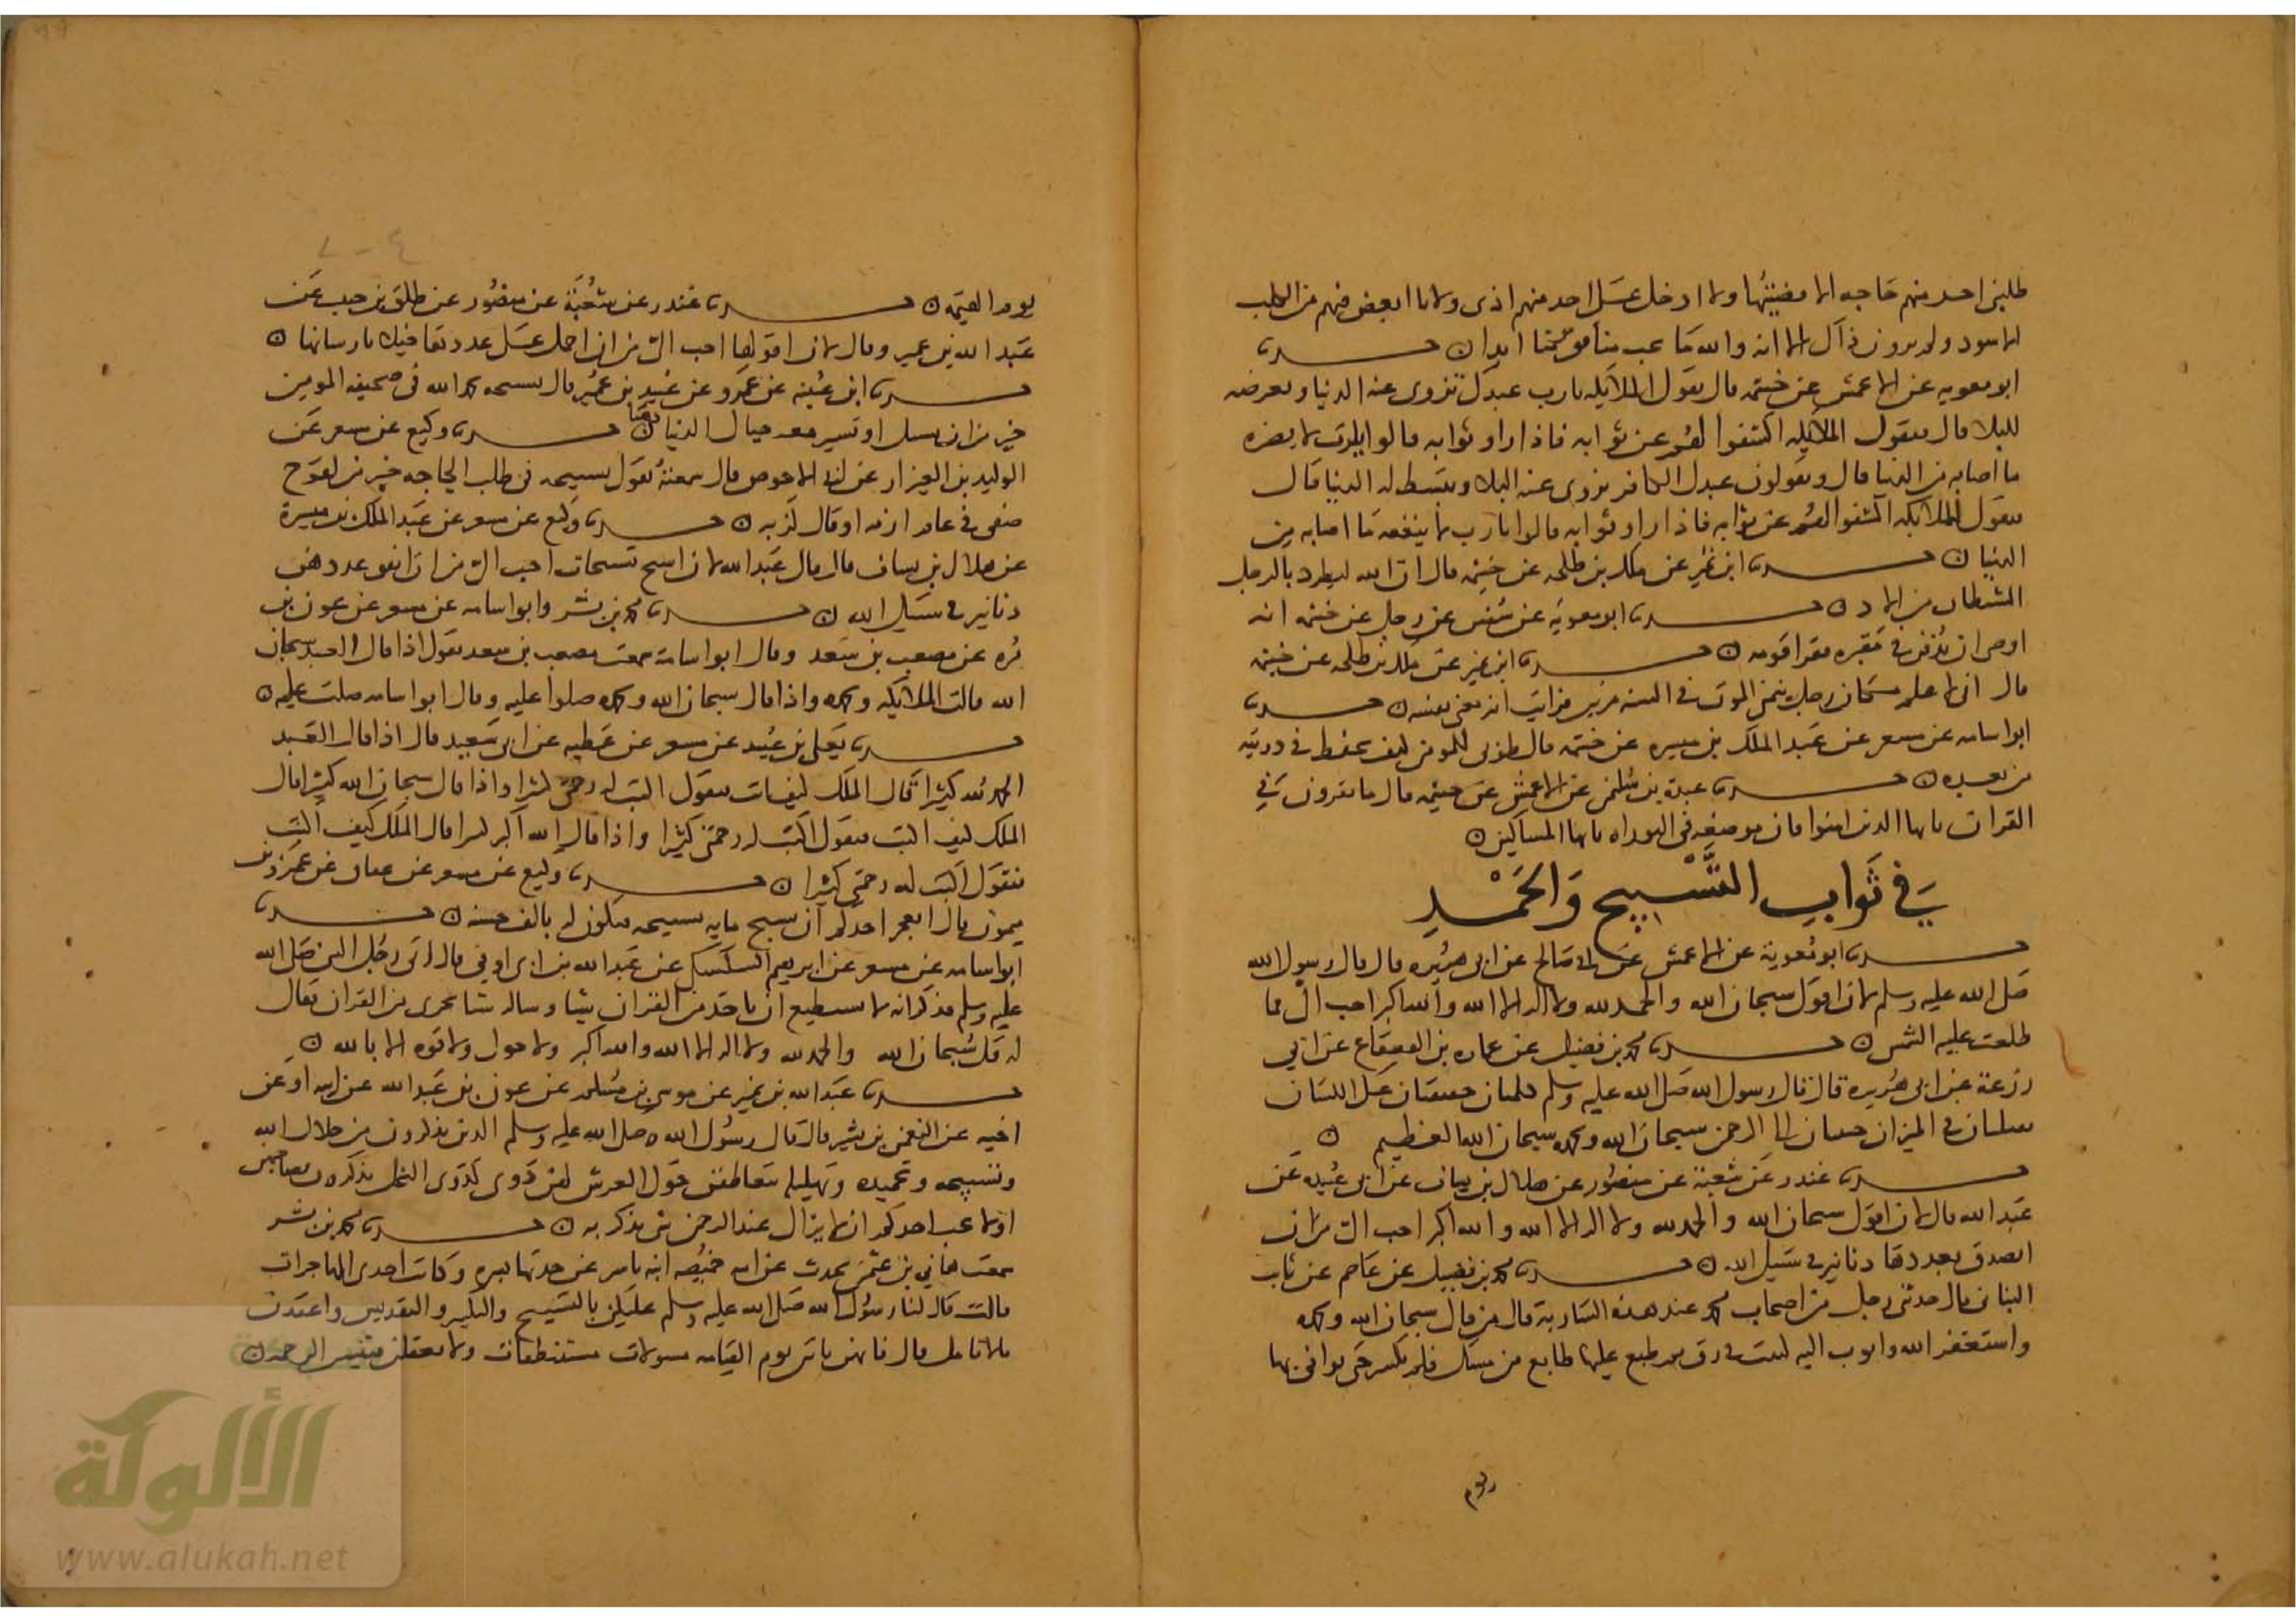 طلبني احد منهم حاجه الا قضيتها ولا ادخل علي احد منهم اذى ولانا ابغض فيهم من الكلب
الاسود ولم يرون ذاك الا انه والله ما يحب منافق مؤمنا ابدا ن حدثنا
ابو معويه عن الاعمش عن خيثمه قال يقول الملايكه يارب عبدك تزوى عنه الدنيا وتعرضه
للبلا قال فيقول الملايكه اكشفوا لهم عن ثوابه فاذا راوا ثوابه قالوا يارب لا يضره
ما اصابه من الدنيا قال ويقولون عبدك الكافر تزوى عنه البلا وتبسط له الدنيا قال
فيقول للملايكه اكشفوا لهم عن ثوابه فاذا راوا ثوابه قالوا يارب لا ينفعه ما اصابه من
الدنيا ن حدثنا ابن نمير عن ملك بن طلحه عن خيثمه قال ان الله ليطرد بالرجل
الشيطان من الادر ن حدثنا ابو معوية عن شقيق عن رجل عن خيثمه انه
اوصى ان يدفن في مقبره فقرا قومه ن حدثنا ابن نمير عن ملك بن طلحه عن خيثمه
قال اني لا علم مكان رجل يتمنى الموت في السنه مرتين فرايت انه يعني نفسه ن حدثنا
ابو اسامه عن مسعر عن عبد الملك بن ميسره عن خيثمه قال طوبى للمومن كيف يحفظ في ذريته
من بعده ن حدثنا عبدة بن سليمن عن الاعمش عن خيثمه قال ما تقرون في
القران يايها الذين امنوا فان موضعه في التوراه يايها المساكين ن
في ثَوابِ التَّسْبيح وَالحَمْدِ
حدثنا ابو معوية عن الاعمش عن ابي صالح عن ابي هريره قال قال رسول الله
صلى الله عليه وسلم لان اقول سبحان الله والحمد لله ولا اله الا الله والله اكبر احب الي مما
طلعت عليه الشمس ن حدثنا محمد بن فضيل عن عماره بن القعقاع عن ابي
زرعة عن ابي هريره قال قال رسول الله صلى الله عليه وسلم كلمتان خفيفتان على اللسان
ثقيلتان في الميزان حبيبتان الى الرحمن سبحان الله وبحمده سبحان الله العظيم ن
حدثنا غندر عن شعبة عن منصور عن هلال بن يساف عن ابي عبيده عن
عبد الله قال لان اقول سبحان الله والحمد لله ولا اله الا الله والله اكبر احب الي من ان
اتصدق بعددها دنانير في سبيل الله ن حدثنا محمد بن فضيل عن عاصم عن ثابت
البناني قال حدثني رجل من اصحاب محمد عند هذه السارية قال من قال سبحان الله وبحمده
واستغفر الله واتوب اليه كتبت في رق ثم طبع عليها طابع من مسك فلم يكسر حتى يوافي بها
يوم
يوم القيمه ن حدثنا غندر عن شُعبَة عن منصُور عن طلق بن حبيب عن
عبد الله بن عمير وقال لان اقولها احب الي من ان احمل على عددها خيلا بارسانها ن
حدثنا ابن عيينه عن عمرو عن عبيد بن عمير قال تسبيحه بحمد الله في صحيفه المومن
خير من ان تسيل او تسير معه جبال الدنيا ذهبا ن حدثنا وكيع عن مسعر عن
الوليد بن العيزار عن ابي الاحوص قال سمعته يقول تسبيحه في طلب الحاجه خير من لقوح
صفي في عام ازمه او قال لزبه ن حدثنا وكيع عن مسعر عن عبد الملك بن ميسرة
عن هلال بن يساف قال قال عبد الله لان اسبح تسبيحات احب الي من ان انفق عددهن
دنانير في سبيل الله ن حدثنا محمد بن بشر وابو اسامه عن مسعر عن عون بن
مره عن مصعب بن سعد وقال ابو اسامة سمعت مصعب بن سعد يقول اذا قال العبد سبحان
الله قالت الملايكه وبحمده واذا قال سبحان الله وبحمده صلوا عليه وقال ابو اسامه صلت عليه ن
حدثنا يعلى بن عبيد عن مسعر عن عطيه عن ابي سعيد قال اذا قال العبد
الحمد لله كثيرا قال الملك كيف اكتب فيقول اكتب له رحمتي كثيرا واذا قال سبحان الله كثيرا قال
الملك كيف اكتب فيقول اكتب له رحمتي كثيرا واذا قال الله اكبر كبيرا قال الملك كيف اكتب
فيقول اكتب له رحمتي كثيرا ن حدثنا وكيع عن مسعر عن عمرو بن
ميمون قال ايعجز احدكم ان يسبح مايه تسبيحه فيكون له بالف حسنه ن حدثنا
ابو اسامه عن مسعر عن ابرهيم السكسكي عن عبد الله بن ابي اوفى قال اتى رجل النبي صلى الله
عليه وسلم فذكر انه لا يستطيع ان ياخذ من القران شيا وساله شيا يجزي من القران فقال
له قل سبحان الله والحمد لله ولا اله الا الله والله اكبر ولا حول ولا قوه الا بالله ن
حدثنا عبد الله بن نمير عن موسى بن مسلم عن عون بن عبد الله عن ابيه او عن
اخيه عن النعمن بن بشير قال قال رسول الله صلى الله عليه وسلم الذين يذكرون من جلال الله
وتسبيحه وتحميده وتهليله يتعاطفن حول العرش لهن دوي كدوي النحل يذكرون بصاحبهن
اولا يحب احدكم ان لا يزال عند الرحمن شي يذكر به ن حدثنا محمد بن بشر
سمعت هاني بن عثمن يحدث عن امه حميضه ابنة ياسر عن جدتها يسيره وكانت احدى المهاجرات
قالت قال لنا رسول الله صلى الله عليه وسلم عليكن بالتسبيح والتكبير والتقديس واعقدن
بالانامل قال فانهن ياتين يوم القيامه مسولات مستنطقات ولا تغفلن فتنسين الرحمه ن
الألوكة
www.alukah.net